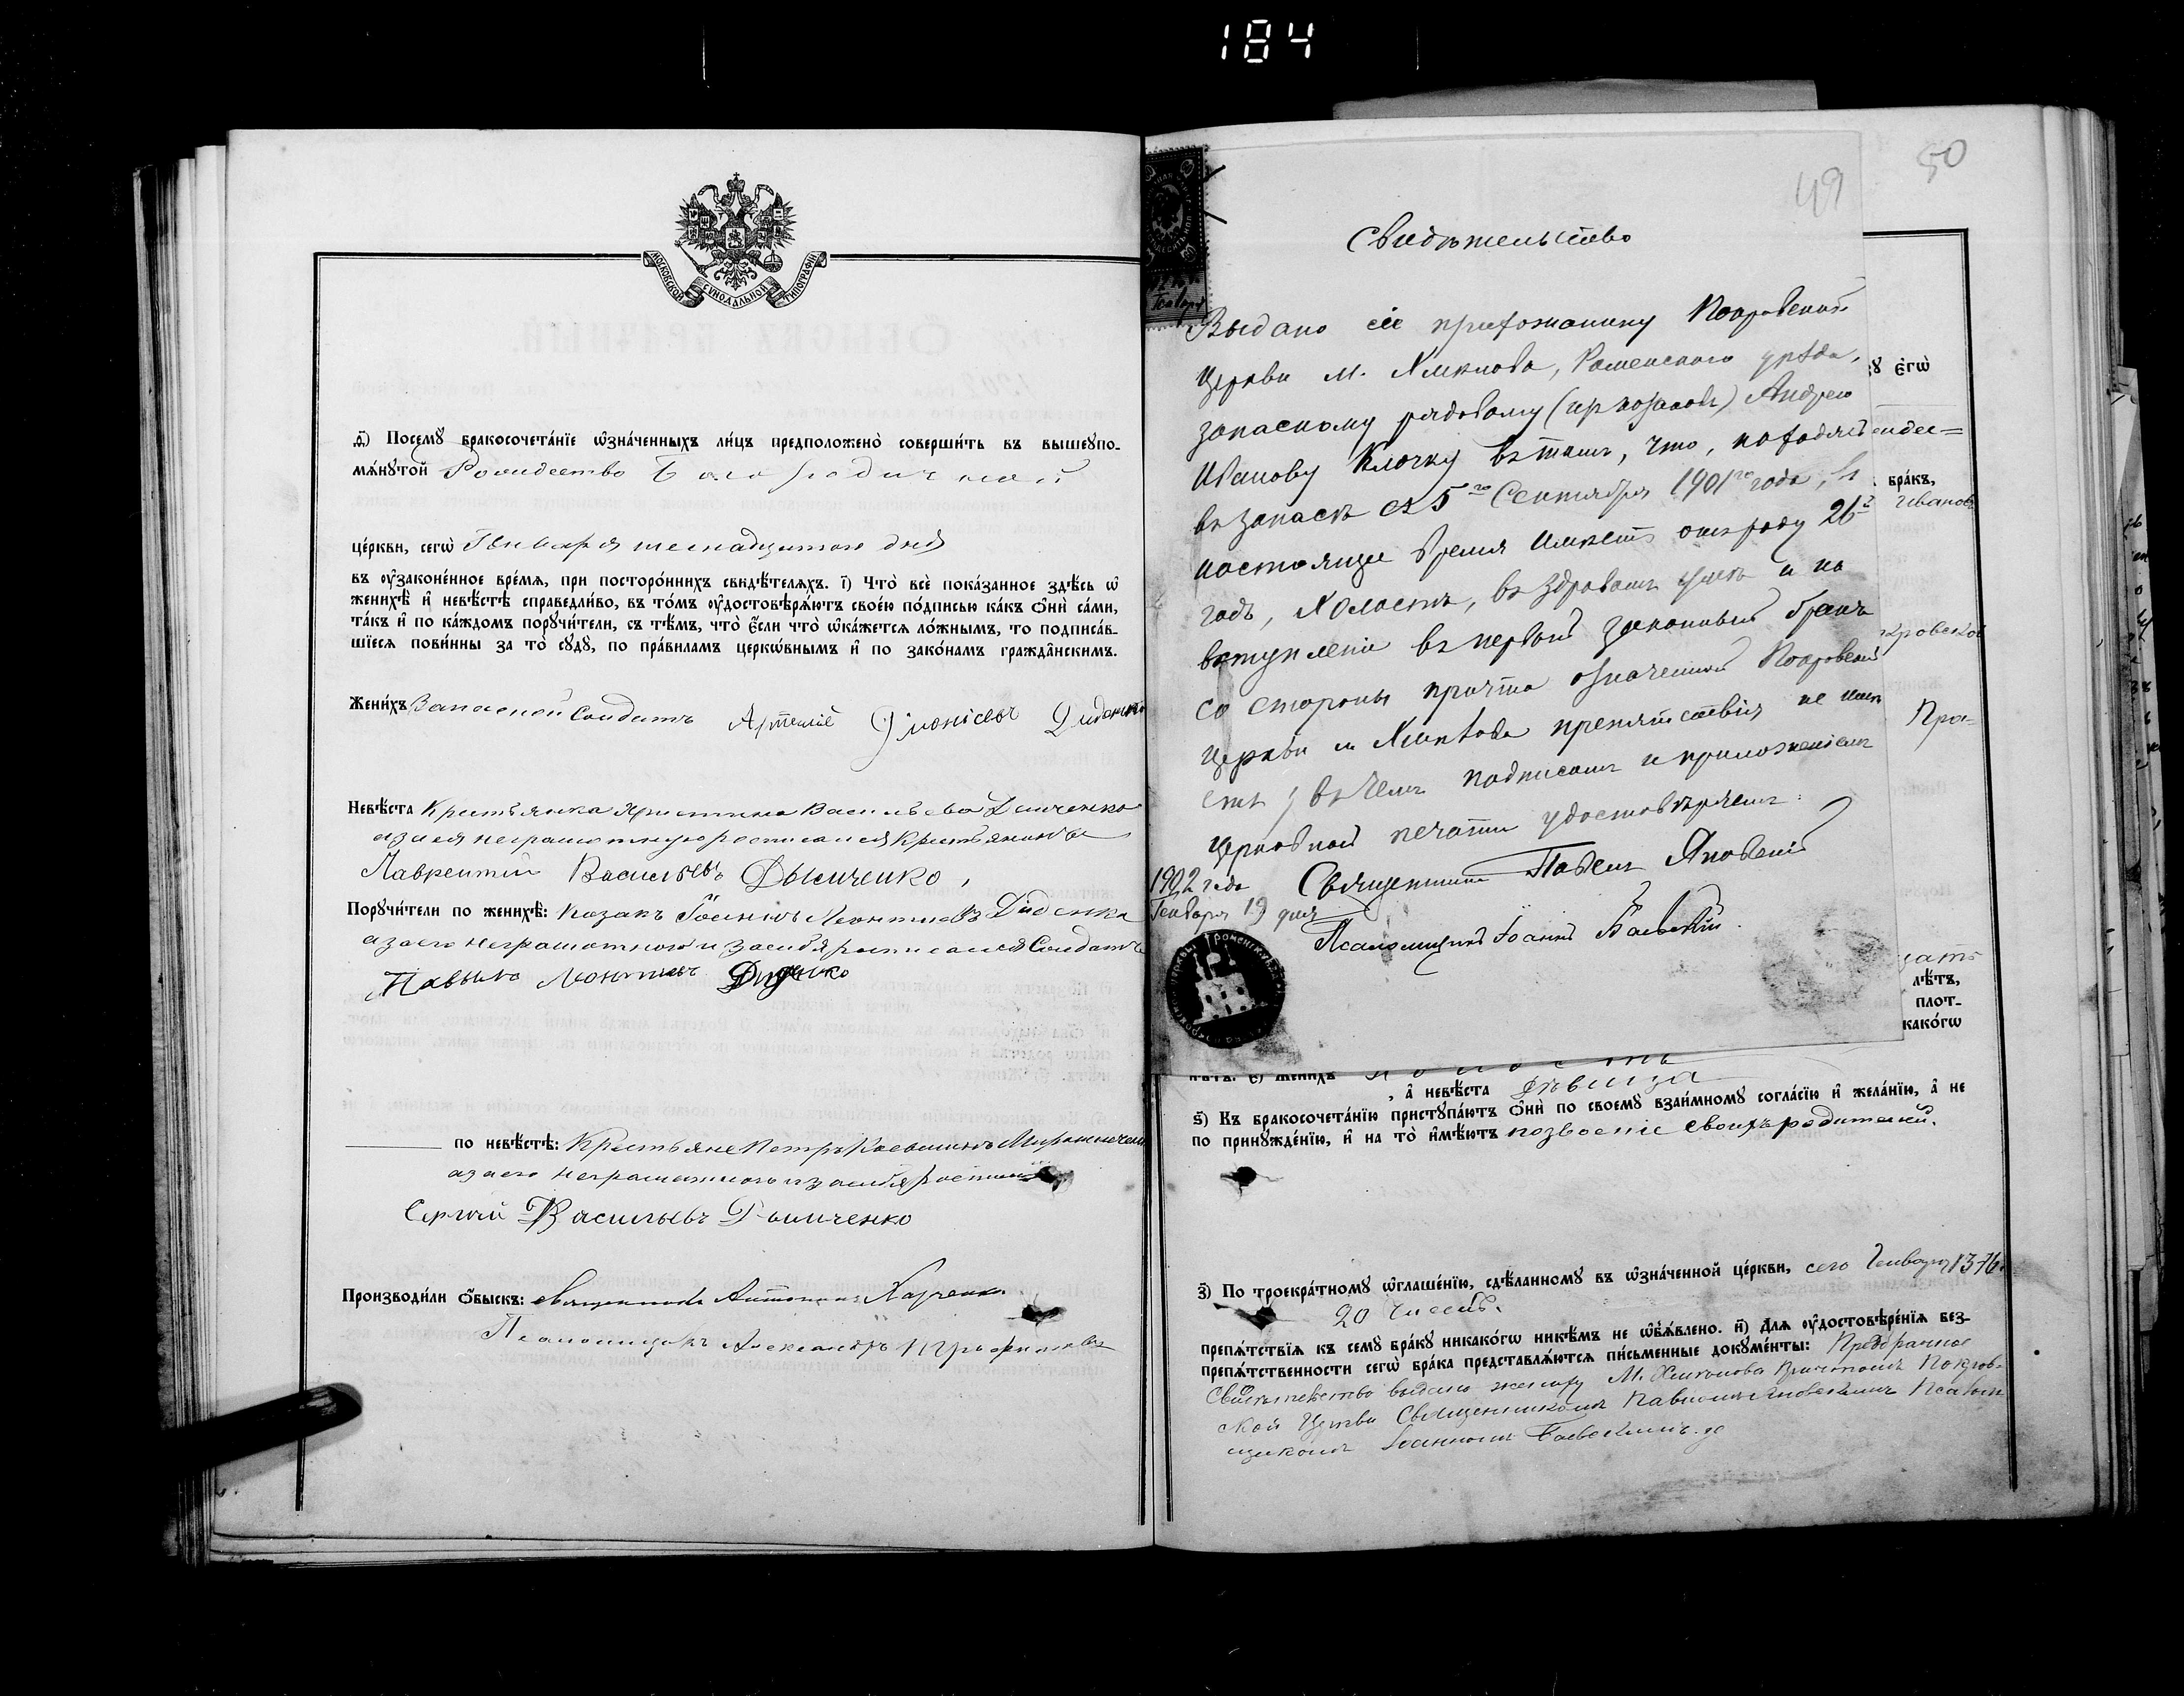 184
МОСКОВСКОЙ СѴНОДАЛЬНОЙ ТИПОГРАФІИ
Посемꙋ̀ бракосочета́нїе ѡ҆зна́ченныхъ ли́цъ предположено̀ соверши́ть въ вышеꙋпо-
мѧ́нꙋтой Рождество Богородичной
це́ркви, сегѡ̀ Генваря шенадцатаго дня
въ ᲂу҆зако́ненное вре́мѧ, при посторо́ннихъ свидѣ́телѧхъ. і҃) Что̀ всѐ пока́занное здѣ́сь ѡ҆
женихѣ̀ и҆ невѣ́стѣ справедли́во, въ то́мъ ᲂу҆достовѣрѧ́ютъ свое́ю по́дписью ка́къ ѻ҆нѝ са́ми,
та́къ и҆ по ка́ждомъ порꙋчи́тели, съ тѣ́мъ, что̀ є҆́сли что̀ ѡ҆ка́жетсѧ ло́жнымъ, то подписа́в-
шїесѧ пови́нны за то̀ сꙋдꙋ̀, по пра́виламъ церкѡ́внымъ и҆ по зако́намъ гражда̂нскимъ.
Жени́хъ Запасной Солдатъ Артемій Діонісіевъ Диденко
Невѣ́ста Крестьянка Христина Васильева Дымченко
а за ея неграмотную росписался Крестьянинъ
Лаврентій Васильевъ Дымченко,
Порꙋчи́тели по женихѣ̀: Козакъ Іоаннъ Леонтіевъ Диденко
а за его неграмотного и за себя росписался Солдатъ
Павелъ Леонтіевъ Диденко
по невѣ́стѣ: Крестьяне Петръ
а за его неграмотного и за себя росписался
Сергій Васильевъ Дымченко
Производи́ли ѻ҆́быскъ: Священникъ Антоній Харченко
Псаломщикъ Александръ
49
50
Свидѣтельство
Выдано сіе прихожанину Покровской
церкви м. Хмѣлова, Роменскаго уѣзда,
запасному рядовому (изъ козаковъ) Андрею
Иванову Клочку въ томъ, что, находясь
въ запасѣ съ 5го Сентября 1901го года, въ
настоящее время имѣетъ отъ роду 26й
годъ, холостъ, въ здравомъ умѣ и на
вступленіе въ первый законный бракъ
со стороны причта означенной Покровской
церкви м. Хмѣлова препятствія не имѣ-
етъ; въ чемъ подписомъ и приложеніемъ
церковной печати удостовѣряемъ:
1902 года
Генваря 19 дня
Священникъ Павелъ Яновскій
Псаломщикъ Іоаннъ Баевскій.
є҆гѡ̀
бра́къ,
Ивановъ
Покровской
Пра-
лѣ́тъ,
плот-
какѡ́гѡ
жени́хъ холостъ
, а҆ невѣ́ста дѣвица
ѕ҃) Къ бракосочета́нїю пристꙋпа́ютъ ѻ҆нѝ по своемꙋ̀ взаи́мномꙋ согла́сїю и҆ жела́нїю, а҆ не
по принꙋжде́нїю, и҆ на то̀ и҆мѣ́ютъ позволеніе своихъ родителей.
з҃) По троекра́тномꙋ ѡ҆глаше́нїю, сдѣ́ланномꙋ въ ѡ҆зна́ченной це́ркви, сего Генваря 13, 16 и
20 чиселъ.
препѧ́тствїѧ къ семꙋ̀ бра́кꙋ никакѡ́гѡ никѣ́мъ не ѡ҆б̾ѧ́влено. и҃) Длѧ ᲂу҆достовѣре́нїѧ без-
препѧ́тственности сегѡ̀ бра́ка представлѧ́ютсѧ пи́сьменные докꙋме́нты: Предбрачное
Свидѣтельство выдано жениху М. Хмѣлова Причтомъ Покров-
ской Церкви Священникомъ Павломъ Яновскимъ Псалом-
щикомъ Іоанномъ Баевскимъ.